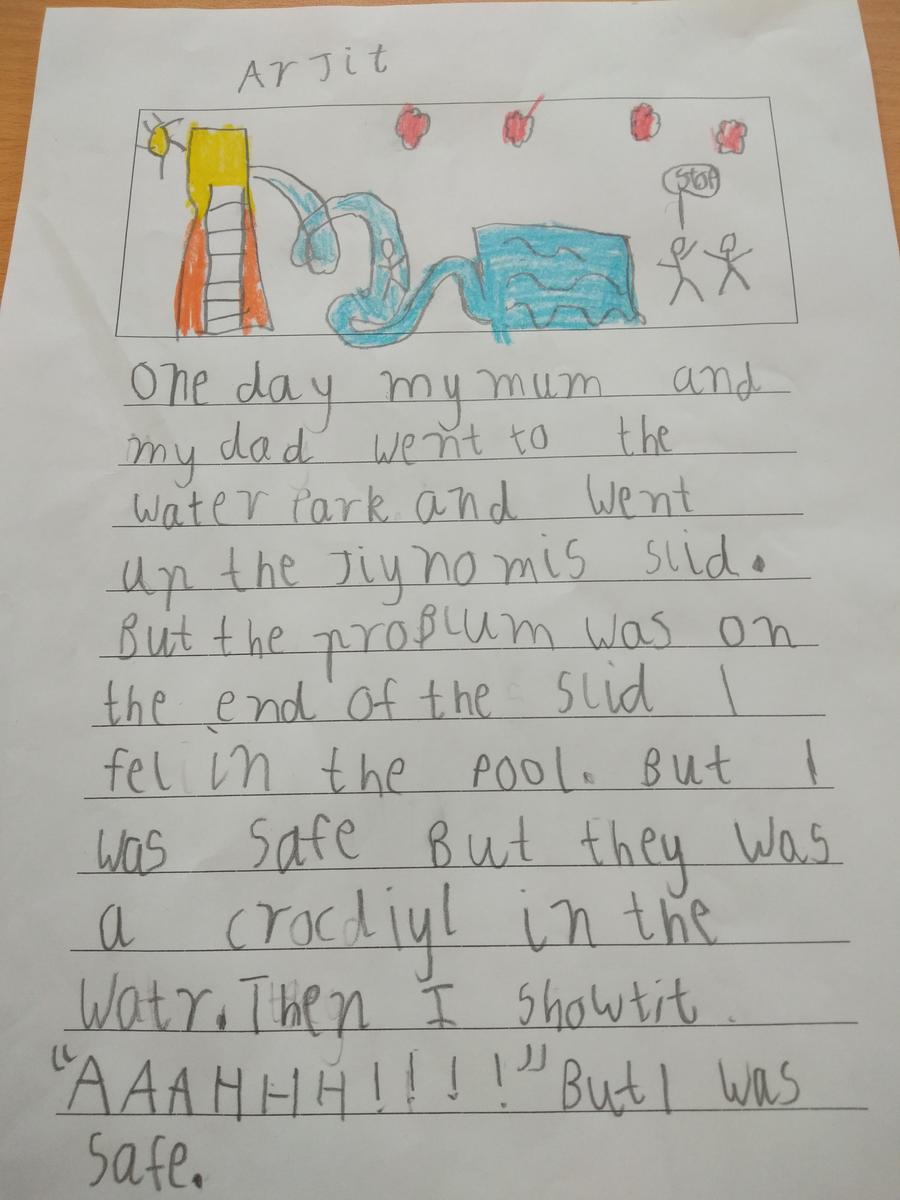 Arjit
Stop
One day my mum and
my dad went to the
water Park and went
up the Jiynomis slid.
But the problum was on
the end of the slid I
fel in the pool. But I
was safe But they was
a crocdiyl in the
watr. Then I showtit
"AAAHHH!!!!" But I was
safe.